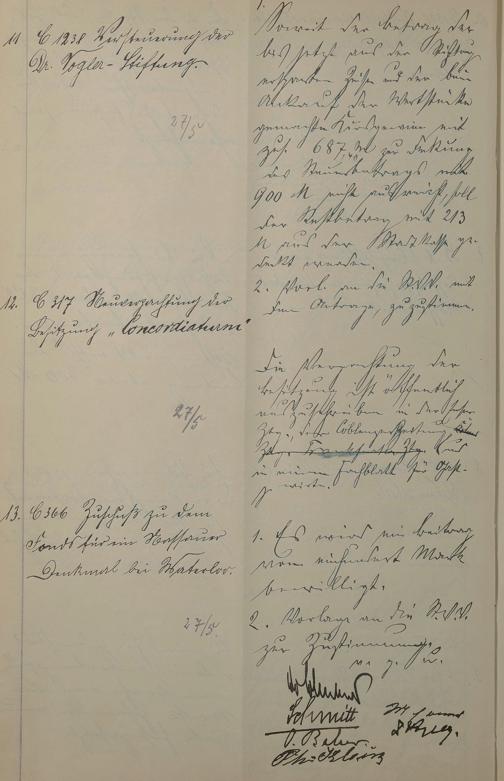 11 C 1238 Versteuerung der
Dr. Vogler-Stiftung.
27/5
1.
Soweit der Betrag der
bis jetzt aus der Stiftung
ersparten Zinsen und der beim
Ankauf der Wertstücke
gemachten Kursgewinne mit
zus. 687, M zur Deckung
des Steuerbetrags mit
900 M nicht ausreicht, soll
der Restbetrag mit 213
M aus der Stadtkasse ge-
deckt werden.
2. Vorl. an die St.V.V. mit
dem Antrage, zuzustimmen.
12. C 317 Neuverpachtung der
Besitzung „Concordiaturm"
27/5
Die Verpachtung der
Besitzung ist öffentlich
auszuschreiben in der
Ztg., der Coblenzer Zeitung
Ztg., Frankfurter Ztg. und
in einem Fachblatt für Gast-
wirte.
13. C 366 Zuschuß zu dem
Fonds für ein Nassauer
Denkmal bei Waterloo.
27/5.
1. Es wird ein Beitrag
von einhundert Mark
bewilligt.
2. Vorlage an die St.V.V.
zur Zustimmung.
v. g. u.
Schmitt